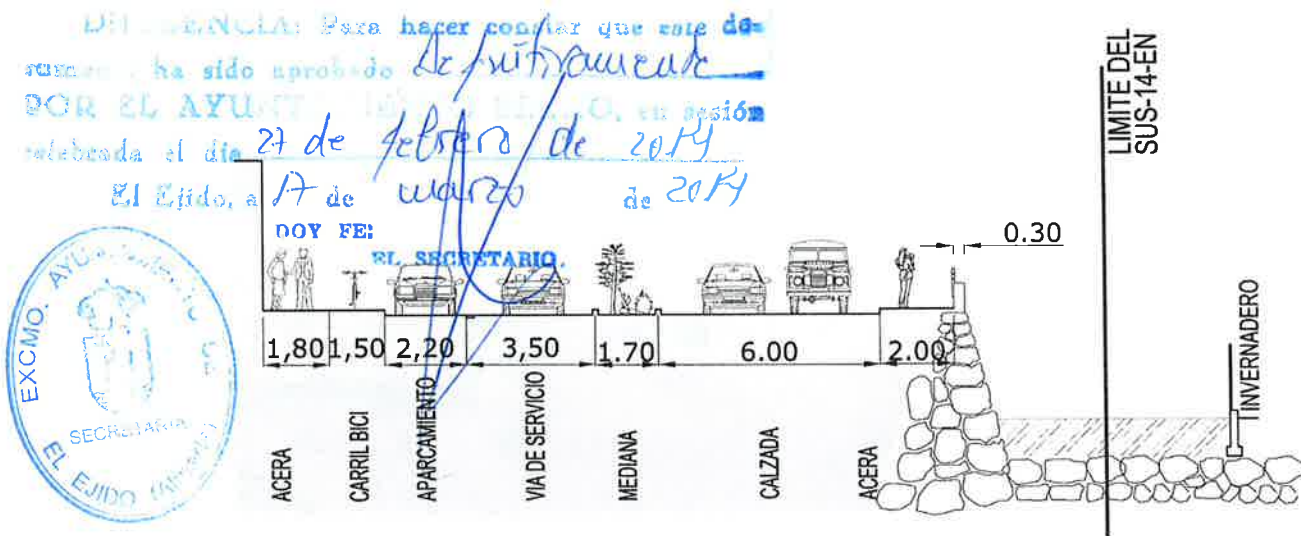 DILIGENCIA: Para hacer constar que este do-
cumento, ha sido aprobado definitivamente
POR EL AYUNTAMIENTO PLENO, en sesión
celebrada el día 27 de febrero de 2014
El Ejido, a 17 de marzo de 2014
DOY FE:
EL SECRETARIO.
EXCMO. AYUNTAMIENTO DE
SECRETARIA
EL EJIDO (Almería)
LIMITE DEL
SUS-14-EN
0.30
1,80 1,50 2,20 3,50 1.70 6.00 2.00
ACERA
CARRIL BICI
APARCAMIENTO
VIA DE SERVICIO
MEDIANA
CALZADA
ACERA
INVERNADERO